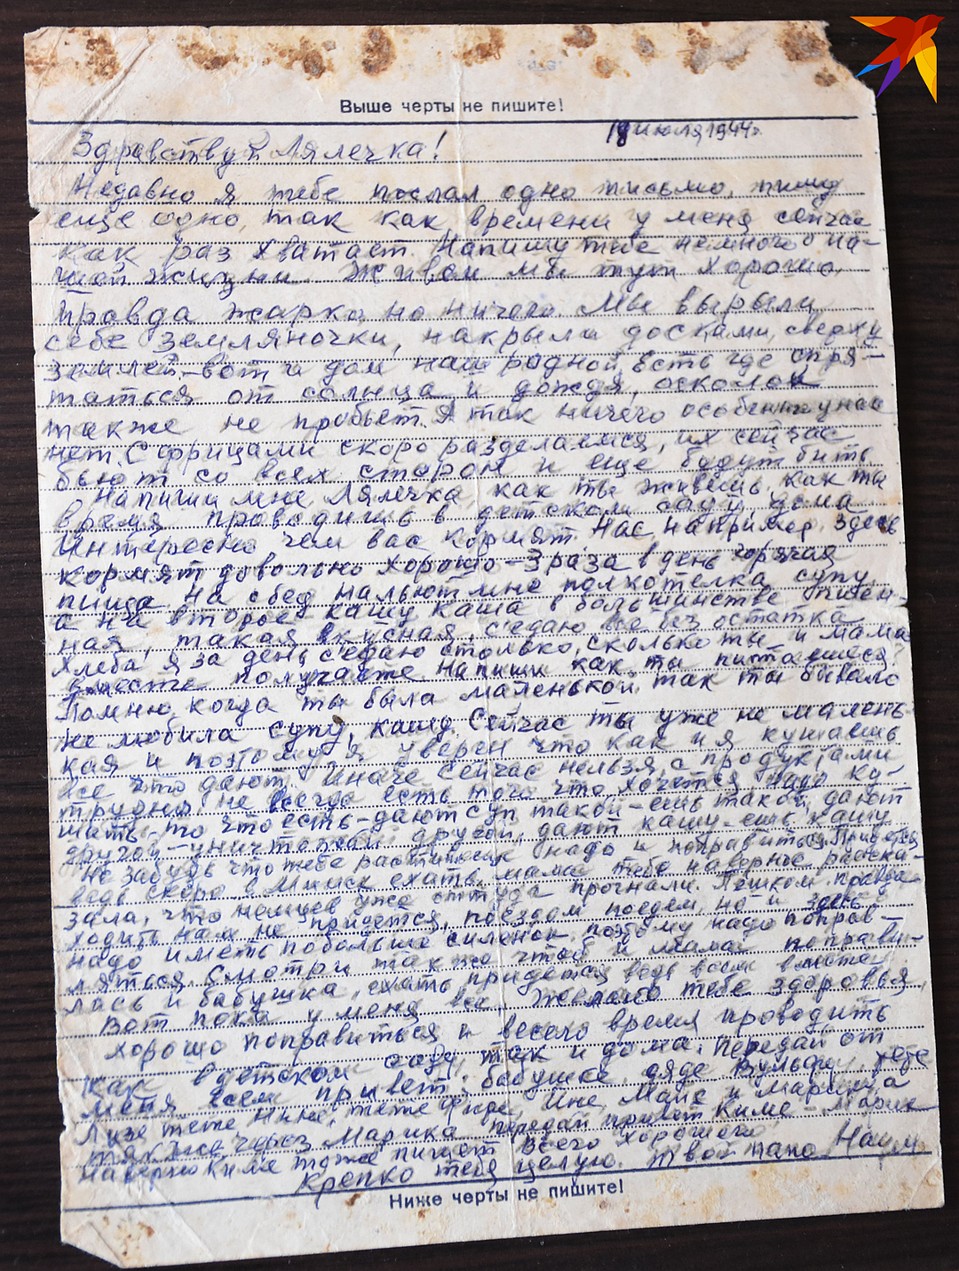 Выше черты не пишите!
18 июля 1944 г.
Здравствуй Лялечка!
Недавно я тебе послал одно письмо, пишу
еще одно, так как времени у меня сейчас
как раз хватает. Напишу тебе немного о на-
шей жизни. Живем мы тут хорошо,
правда жарко, но ничего. Мы вырыли
себе земляночки, накрыли досками, сверху
землей – вот и дом наш родной. Есть где спря-
таться от солнца и дождя, осколок
также не пробьет. А так ничего особенного у нас
нет. С фрицами скоро разделаемся, их сейчас
бьют со всех сторон и еще будут бить
Напиши мне Лялечка, как ты живешь, как ты
время проводишь в детском саду, дома
Интересно чем вас кормят. Нас, например, здесь
кормят довольно хорошо – 3 раза в день горячая
пища. На обед нальют мне полкотелка супу,
а на второе кашу. Каша в большинстве пшен-
ная, такая вкусная, съедаю все без остатка
Хлеба я за день съедаю столько, сколько ты и мама
вместе получаете. Напиши как ты питаешься?
Помню, когда ты была маленькой, так ты бывало
не любила супу, кашу. Сейчас ты уже не малень-
кая и поэтому я уверен что как и я кушаешь
все что дают. Иначе сейчас нельзя, с продуктами
трудно, не всегда есть то что хочется. Надо ку-
шать то что есть – дают суп такой – ешь такой, дают
другой – уничтожай другой, дают кашу – ешь кашу
Не забудь что тебе расти надо и поправиться. Придется
ведь скоро в Минск ехать, мама тебе наверное расска-
зала, что немцев уже оттуда прогнали. Пешком, правда
ходить нам не придется, поездом поедем, но и здесь
надо иметь побольше силенок, поэтому надо поправ-
ляться. Смотри также чтоб и мама поправи-
лась и бабушка, ехать придется ведь всем вместе
Вот пока у меня все. Желаю тебе здоровья,
хорошо поправиться и весело время проводить
как в детском саду, так и дома. Передай от
меня всем привет: бабушке, дяде Вульфу, тете
Лизе, тете Нине, тете Фире, Инне, Майе и Марика
также через Марика передай привет Киме – Марик
наверно Киме тоже пишет. Всего хорошего,
Крепко тебя целую. Твой папа Наум.
Ниже черты не пишите!